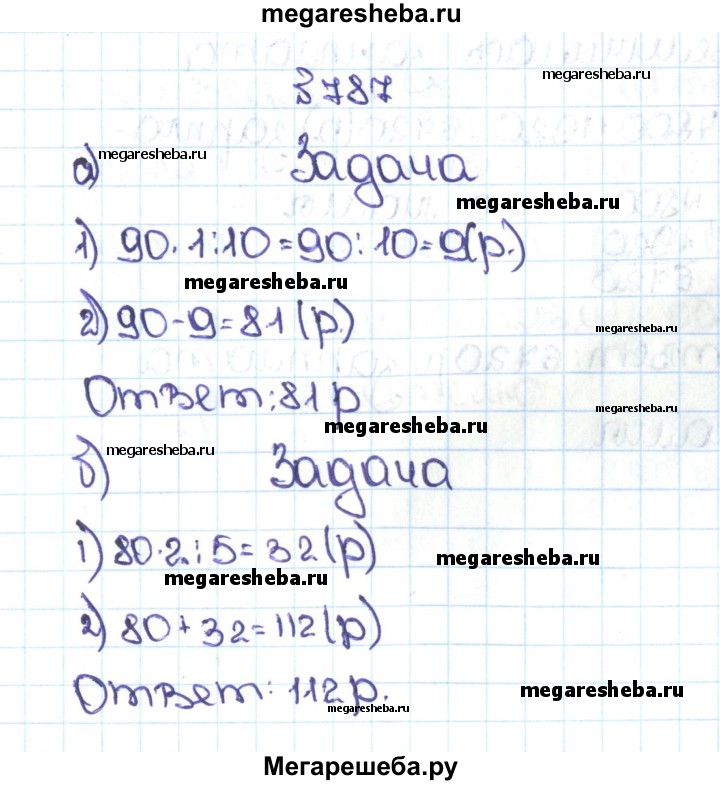 megaresheba.ru
№ 787
megaresheba.ru
а) megaresheba.ru Задача
megaresheba.ru
1) 90·1:10=90:10=9(р.)
megaresheba.ru
2) 90-9=81(р.)
megaresheba.ru
Ответ: 81 р
megaresheba.ru
megaresheba.ru
б) megaresheba.ru Задача
1) 80·2:5=32(р)
megaresheba.ru
megaresheba.ru
2) 80+32=112(р)
Ответ: 112р.
megaresheba.ru
megaresheba.ru
Мегарешеба.ру